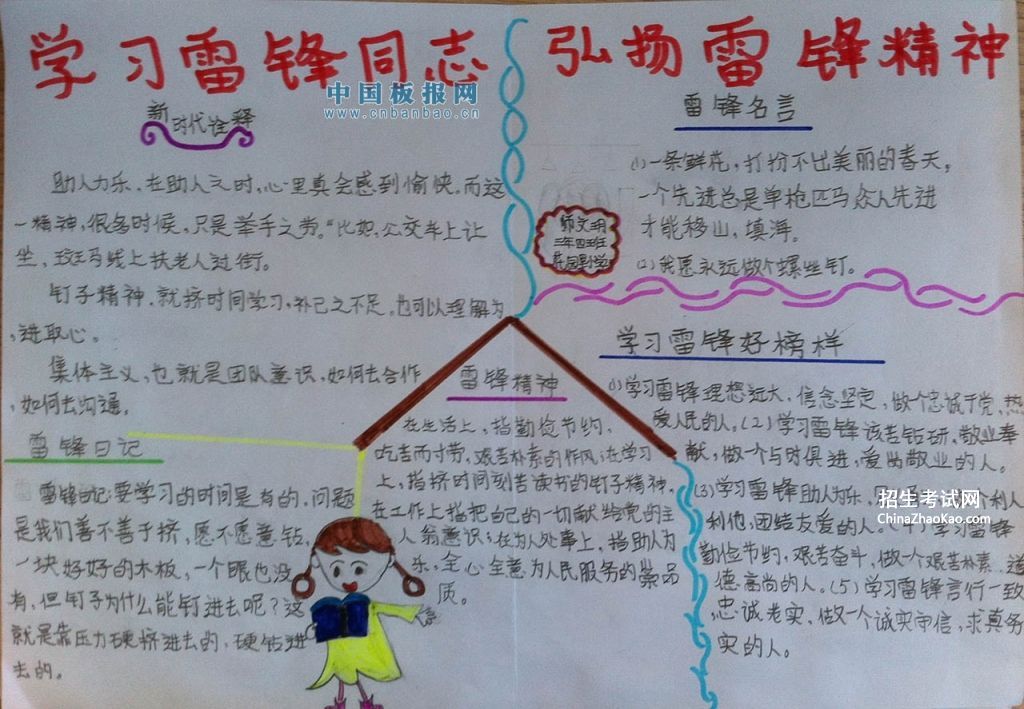 学习雷锋同志
弘扬雷锋精神
中国板报网
www.cnbanbao.cn
新时代诠释
助人为乐,在助人之时,心里真会感到愉快。而这
一精神,很多时候,只是举手之劳。"比如,公交车上让
坐,斑马线上扶老人过街。
钉子精神,就挤时间学习,补己之不足,也可以理解为
,进取心。
集体主义,也就是团队意识,如何去合作
,如何去沟通。
雷锋日记
雷锋日记:要学习的时间是有的,问题
是我们善不善于挤,愿不愿意钻,
一块好好的木板,一个眼也没
有,但钉子为什么能钉进去呢?这
就是靠压力硬挤进去的,硬钻进
去的。
雷锋名言
(1)一条鲜花,打扮不出美丽的春天,
一个先进总是单枪匹马众人先进
才能移山,填海。
(2)我愿永远做个螺丝钉。
师文玥
三年四班
小学
学习雷锋好榜样
(1)学习雷锋理想远大,信念坚定,做个忠诚于党,热
爱人民的人。(2)学习雷锋该苦钻研,敬业奉
献,做一个与时俱进,爱岗敬业的人。
(3)学习雷锋助人为乐,个利人
利他,团结友爱的人。学习雷锋
勤俭节约,艰苦奋斗,做一个艰苦朴素,道
德高尚的人。(5)学习雷锋言行一致
忠诚老实,做一个诚实守信,求真务
实的人。
招生考试网
ChinaZhaoKao.com
雷锋精神
在生活上,指勤俭节约,
吃苦而寸劳,艰苦朴素的作风;在学习
上,指挤时间刻苦读书的钉子精神,
在工作上指把自己的一切献给党的主
人翁意识;在为人处事上,指助人为
乐,全心全意为人民服务的崇高品
质。